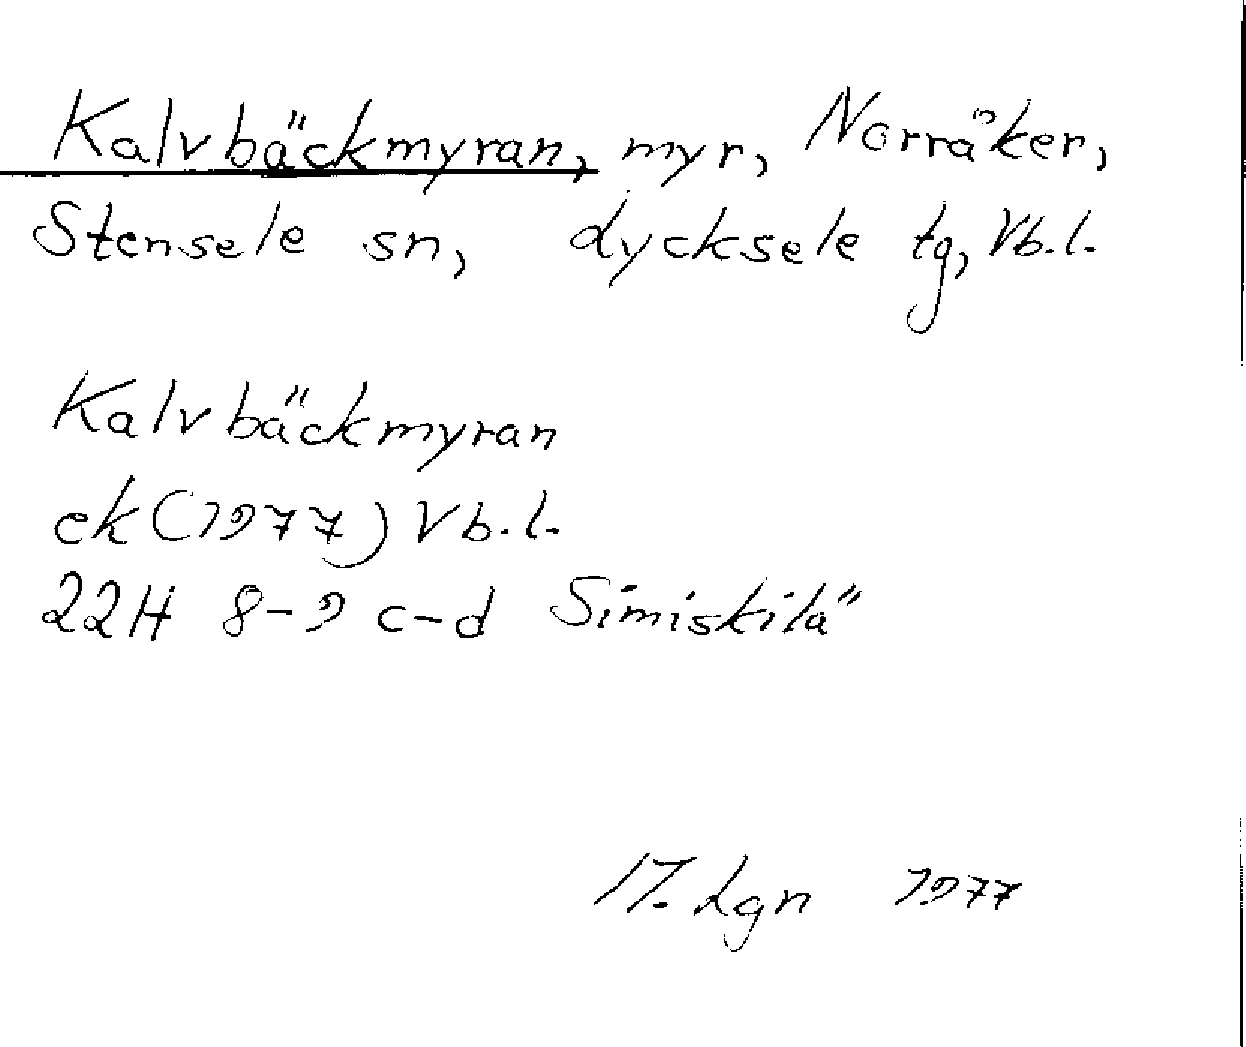 Kalvbäckmyran, myr, Norråker,
Stensele sn, Lycksele tg, Vb.l.
Kalvbäckmyran
ek (1977) Vb.l.
22H 8-9 c-d Simiskilä
Lgn 1977